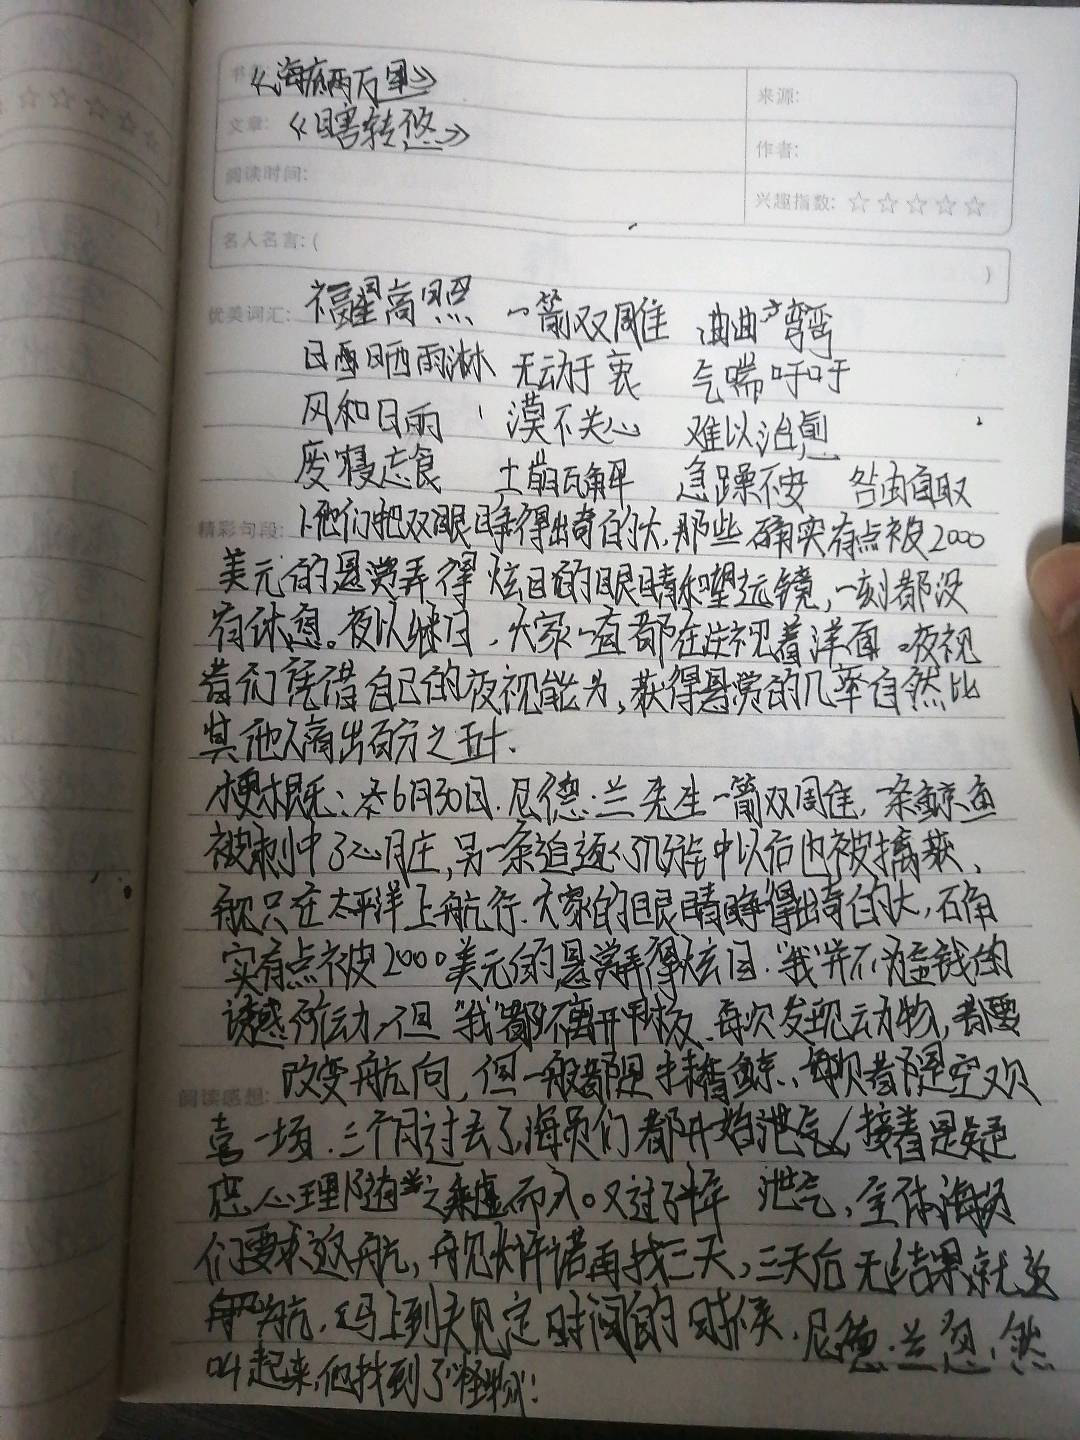 书
《海底两万里》
来源:
文章: 《瞎转悠》
作者:
阅读时间:
兴趣指数: ☆☆☆☆☆
名人名言: ( )
优美词汇: 福星高照 一箭双雕 曲曲弯弯
日晒雨淋 无动于衷 气喘吁吁
风和日雨 漠不关心 难以治愈
废寝忘食 土崩瓦解 急躁不安 咎由自取
精彩句段: 1.他们把双眼睁得出奇的大,那些确实有点被2000
美元的悬赏弄得炫目的眼睛和望远镜,一刻都没
有休息。夜以继日,大家一直都在注视着洋面。夜视
者们凭借自己的夜视能力,获得悬赏的几率自然比
其他人高出百分之五十.
梗概: 6月30日.尼德·兰先生一箭双雕,一条鲸鱼
被刺中了心脏,另一条追逐几分钟以后也被擒获.
舰只在太平洋上航行.大家的眼睛睁得出奇的大,确
实有点被2000美元的悬赏弄得炫目."我"并不为金钱的
诱惑所动,但"我"都不离开甲板.每次发现动物,都要
阅读感想: 改变航向,但一般都是抹香鲸,每次都是空欢
喜一场.三个月过去了,海员们都开始泄气,接着是疑
惑心理随之乘虚而入。又过了半年 泄气,全体海员
们要求返航,舰长许诺再找三天,三天后无结果就返
航,马上到规定时间的时候,尼德·兰忽然
叫起来,他找到了"怪物"!